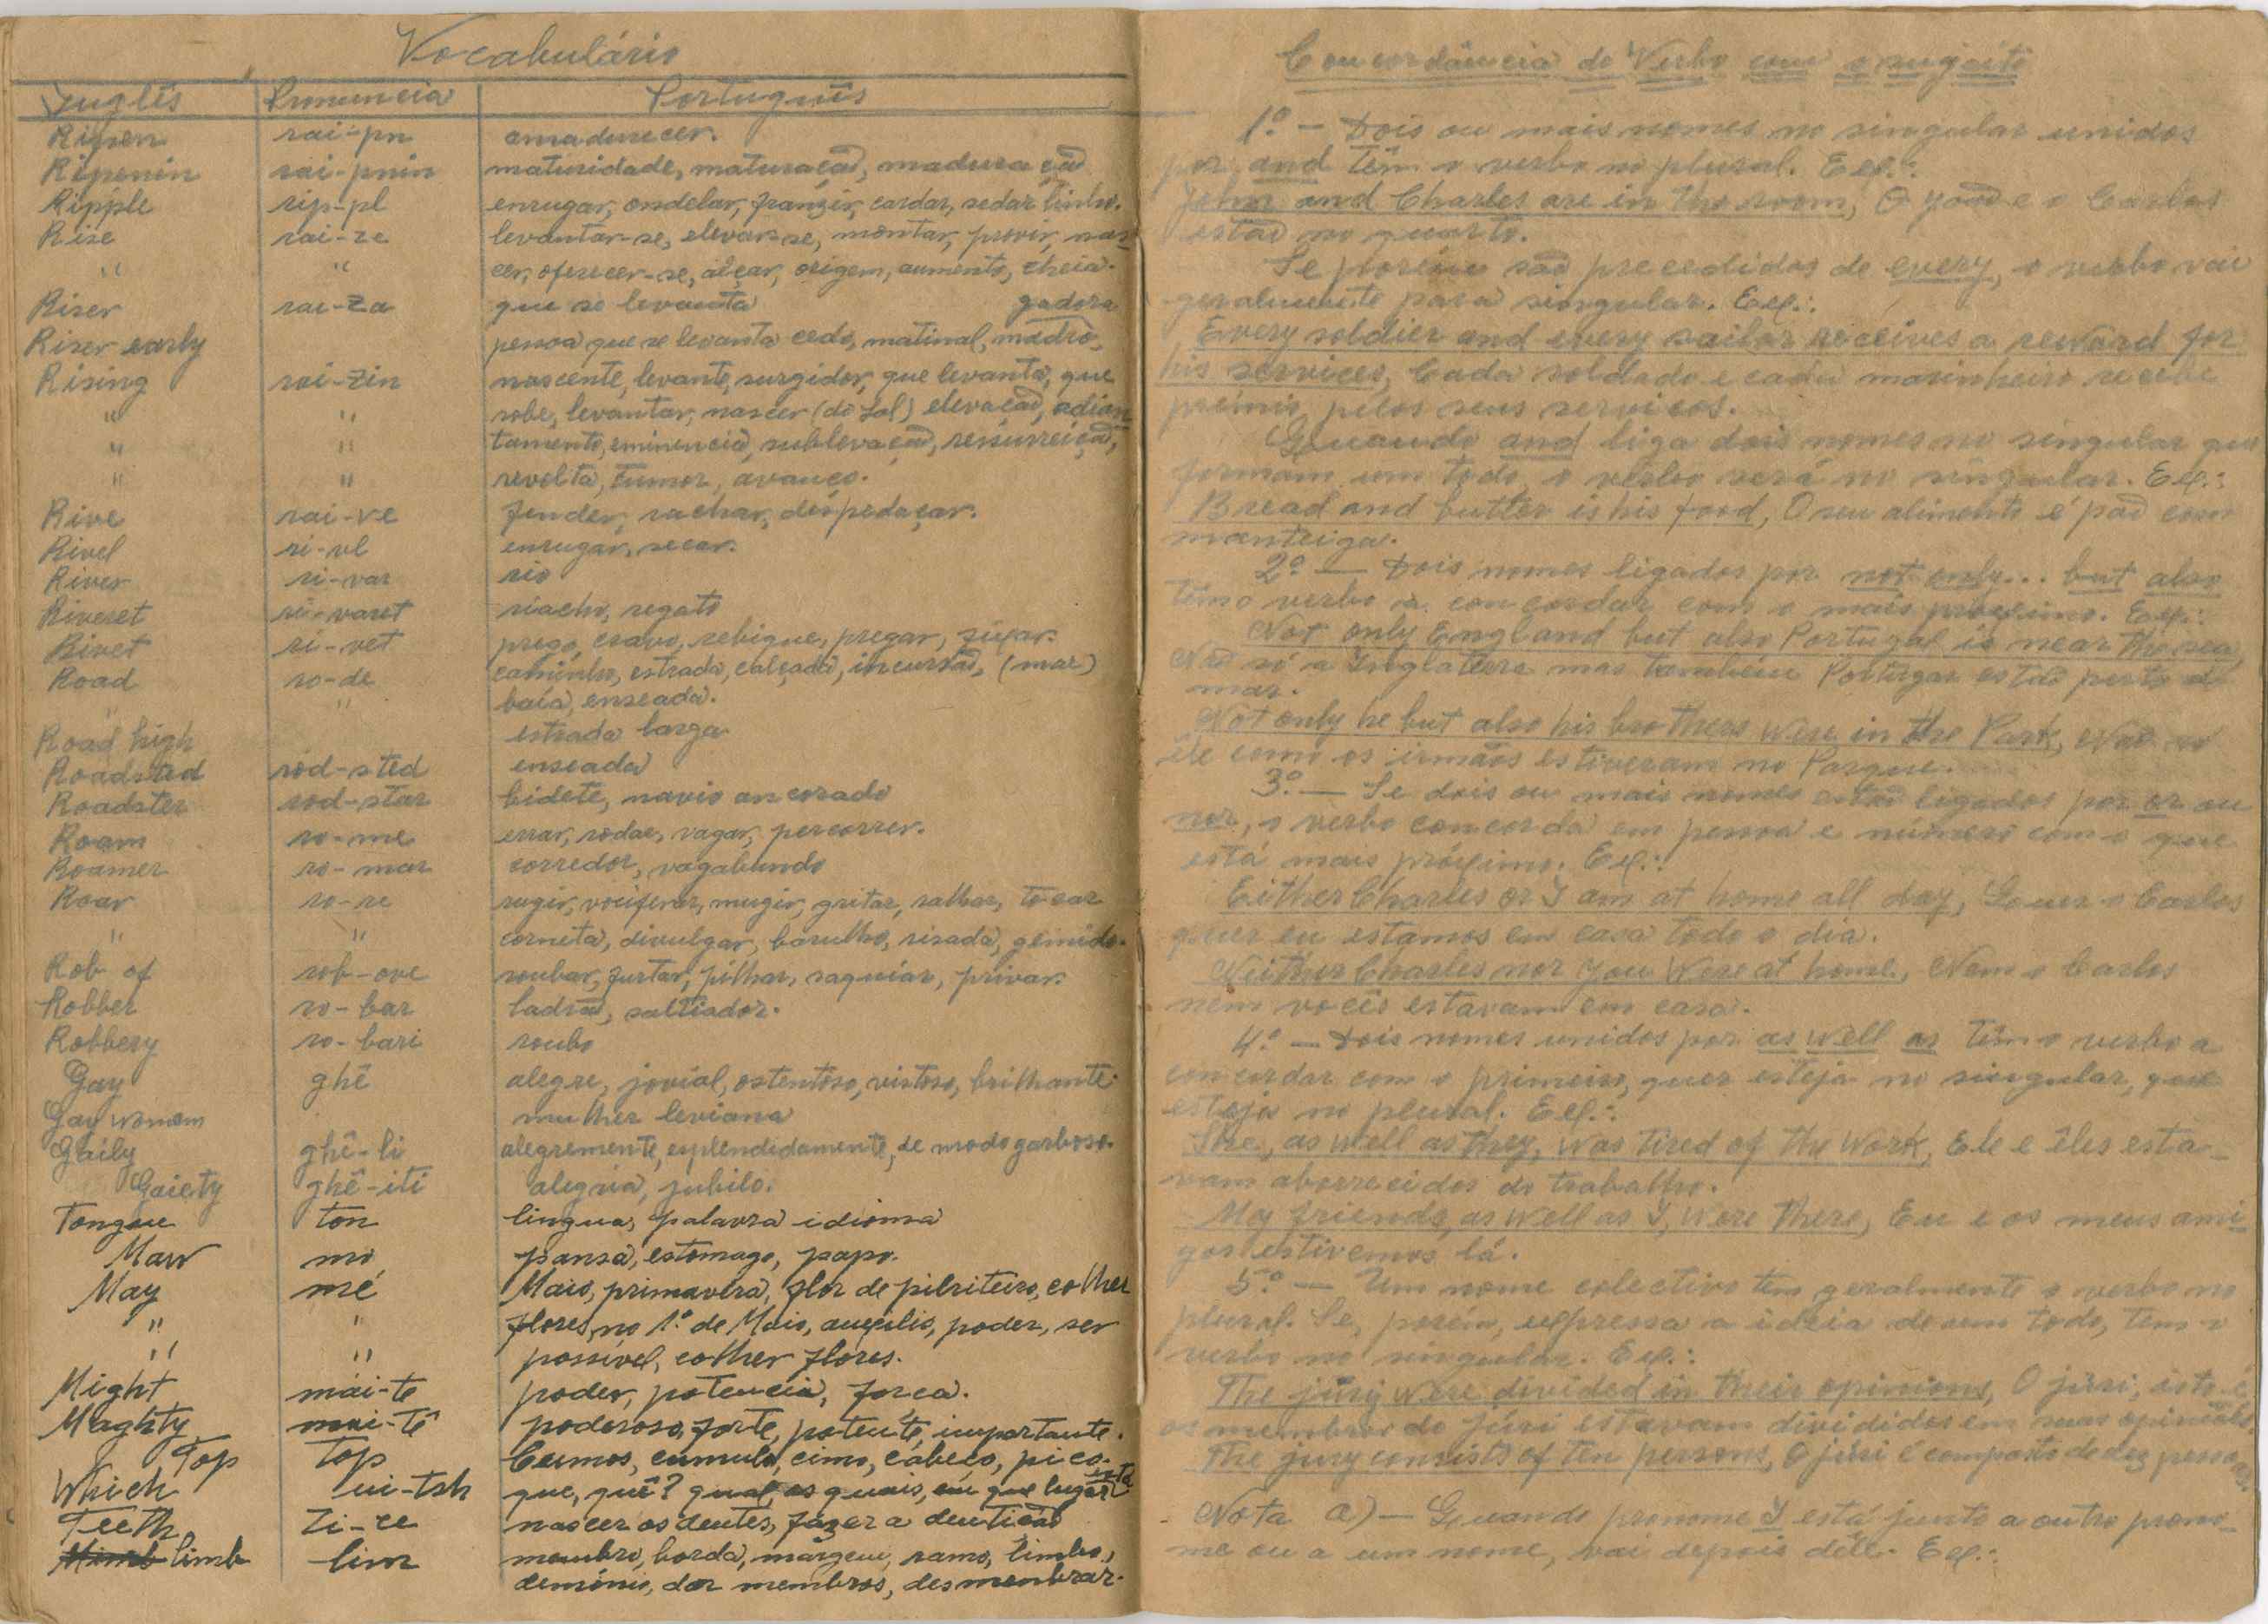 Vocabulário
Inglês Pronuncia Português
Ripen rai-pn amadurecer.
Ripenin rai-pnin maturidade, maturação, maduração
Ripple rip-pl enrugar, ondelar, franzir, cardar, sedar linho.
Rise rai-ze levantar-se, elevar-se, montar, provir, nas-
" " cer, oferecer-se, alçar, origem, aumento, cheia.
Riser rai-za que se levanta gadora
Riser early pessoa que se levanta cedo, matinal, madru,
Rising rai-zin nascente, levante, surgidor, que levanta, que
" " sobe, levantar, nascer (do sol) elevação, adian
" " tamento, eminencia, sublevação, ressurreição,
" " revolta, tumor, avanço.
Rive rai-ve fender, rachar, despedaçar.
Rivel ri-vl enrugar, secar.
River ri-var rio
Riveret ri-varet riacho, regato
Rivet ri-vet prego, cravo, rebique, pregar, fixar.
Road ro-de caminho, estrada, calçada, incursão, (mar)
" " baía, enseada.
Road high estrada larga
Roadsted rod-sted enseada
Roadster rod-star bidete, navio ancorado
Roam ro-me errar, rodar, vagar, percorrer.
Roamer ro-mar corredor, vagabundo
Roar ro-re rugir, vociferar, mugir, gritar, ralhar, tocar
" " corneta, divulgar, barulho, risada, gemido.
Rob of rob-ove roubar, furtar, pilhar, saquiar, privar.
Robber ro-bar ladrão, saltiador.
Robbery ro-bari roubo
Gay ghê alegre, jovial, ostentoso, vistoso, brilhante.
Gay womom mulher leviana
Gaily ghê-li alegremente, esplendidamente, de modo garboso.
Gaiety ghê-iti alegria, jubilo.
Tongue ton lingua, palavra idioma
Maw mo pansa, estomago, papo.
May mé Maio, primavera, flor de pilriteiro, colher
" " flores, no 1.º de Maio, auxilio, poder, ser
" " possível, colher flores.
Might mái-te poder, potencia, força.
Mighty mai-tê poderoso, forte, potente, importante.
Top Top Cumos, cumulo, cimo, cabeço, pico.
Which ui-tsh que, quê? qual, os quais, em que lugar
Teeth Ti-ce nascer os dentes, fazer a dentição
limb lim membro, borda, márgem, ramo, limbo,
demónio, dar membros, desmembrar.
Concordância do Verbo com o sujeito
1.º — Dois ou mais nomes no singular unidos
por and têm o verbo no plural. Ex.:
John and Charles are in the room, O João e o Carlos
estão no quarto.
Se porém são precedidos de every, o verbo vai
geralmente para singular. Ex.:
Every soldier and every sailor receives a reward for
his services, Cada soldado e cada marinheiro recebe
prémio pelos seus serviços.
Quando and liga dois nomes no singular que
formam um todo, o verbo será no singular. Ex.:
Bread and butter is his food, O seu alimento é pão com
manteiga.
2.º — Dois nomes ligados por not only... but also
têm o verbo a concordar com o mais proximo. Ex.:
Not only England but also Portugal is near the sea,
Não só a Inglaterra mas também Portugal estão perto do
mar.
Not only he but also his brothers were in the Park, Não só
êle como os irmãos estiveram no Parque.
3.º — Se dois ou mais nomes estão ligados por or ou
nor, o verbo concorda em pessoa e número com o que
está mais próximo. Ex.:
Either Charles or I am at home all day, Quer o Carlos
quer eu estamos em casa todo o dia.
Neither Charles nor you were at home, Nem o Carlos
nem vocês estavam em casa.
4.º — Dois nomes unidos por as well as têm o verbo a
concordar com o primeiro, quer esteja no singular, quer
esteja no plural. Ex.:
She, as well as they, was tired of the work, Ele e êles esta-
vam aborrecidos do trabalho.
My friends, as well as I, were there, Eu e os meus ami-
gos estivemos lá.
5.º — Um nome colectivo tem geralmente o verbo no
plural. Se, porém, expressa a ideia de um todo, tem o
verbo no singular. Ex.:
The jury were divided in their opinions, O júri, isto é,
os membros do júri estavam divididos em suas opiniões.
The jury consists of ten persons, O júri é composto de dez pessoas.
Nota a) — Quando pronome I está junto a outro prono-
me ou a um nome, vai depois dêle. Ex.: